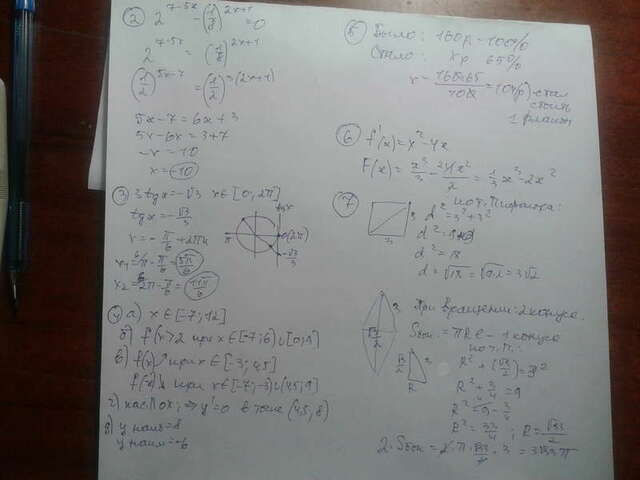 ② 2^(7-5x) - (1/8)^(2x+1) = 0
2^(7-5x) = (1/8)^(2x+1)
(1/2)^(5x-7) = (1/2)^(3(2x+1))
5x-7 = 6x+3
5x-6x = 3+7
-x = 10
x = -10
③ 3tgx = -√3 x∈[0;2π]
tgx = -√3/3
x = -π/6 + πn
x₁ = π - π/6 = 5π/6
x₂ = 2π - π/6 = 11π/6
tgx
π
0(2π)
-√3/3
④ а) x∈[-7;12]
б) f(x)>2 при x∈[-7;6)∪
в) f(x)↗ при x∈[-3;4,5]
f(x)↘ при x∈[-7;-3)∪(4,5;9]
г) кас. || Ox, ⇒ y'=0 в точке (4,5; 8)
д) y наиб=8
y наим=-6
⑤ Было: 160р = 100%
Стало: xр 65%
x = 160·65/100 = 104(р) стал
стоить
1 флакон
⑥ f'(x) = x² - 4x
F(x) = x³/3 - 4x²/2 = 1/3 x³ - 2x²
⑦ по т. Пифагора:
3
3
d² = 3² + 3²
d² = 9+9
d² = 18
d = √18 = √9·2 = 3√2
При вращении: 2 конуса.
Sбок. = πRl - 1 конуса
по т. П.:
R² + (√3/2)² = 3²
R² + 3/4 = 9
R² = 9 - 3/4
R² = 33/4 ; R = √33/2
2·Sбок = 2·π·√33/2·3 = 3√33π